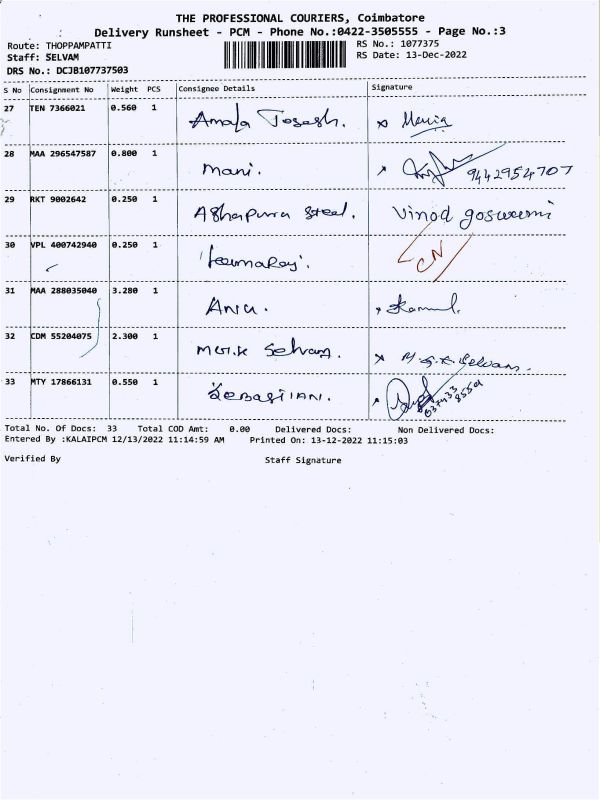 THE PROFESSIONAL COURIERS, Coimbatore
Delivery Runsheet - PCM - Phone No.:0422-3505555 - Page No.:3
Route: THOPPAMPATTI RS No.: 1077375
Staff: SELVAM RS Date: 13-Dec-2022
DRS No.: DCJB107737503
S No Consignment No Weight PCS Consignee Details Signature
27 TEN 7366021 0.560 1 Amala Joseph. x Maria
28 MAA 296547587 0.800 1 mani. x 9442954707
29 RKT 9002642 0.250 1 AShapura Steel. Vinod goswami
30 VPL 400742940 0.250 1 CN
31 MAA 288035040 3.280 1 x
32 CDM 55204075 2.300 1 Selvam. x M.G.R.Selvam.
33 MTY 17866131 0.550 1 SebastIAN. x
Total No. Of Docs: 33 Total COD Amt: 0.00 Delivered Docs: Non Delivered Docs:
Entered By :KALAIPCM 12/13/2022 11:14:59 AM Printed On: 13-12-2022 11:15:03
Verified By Staff Signature